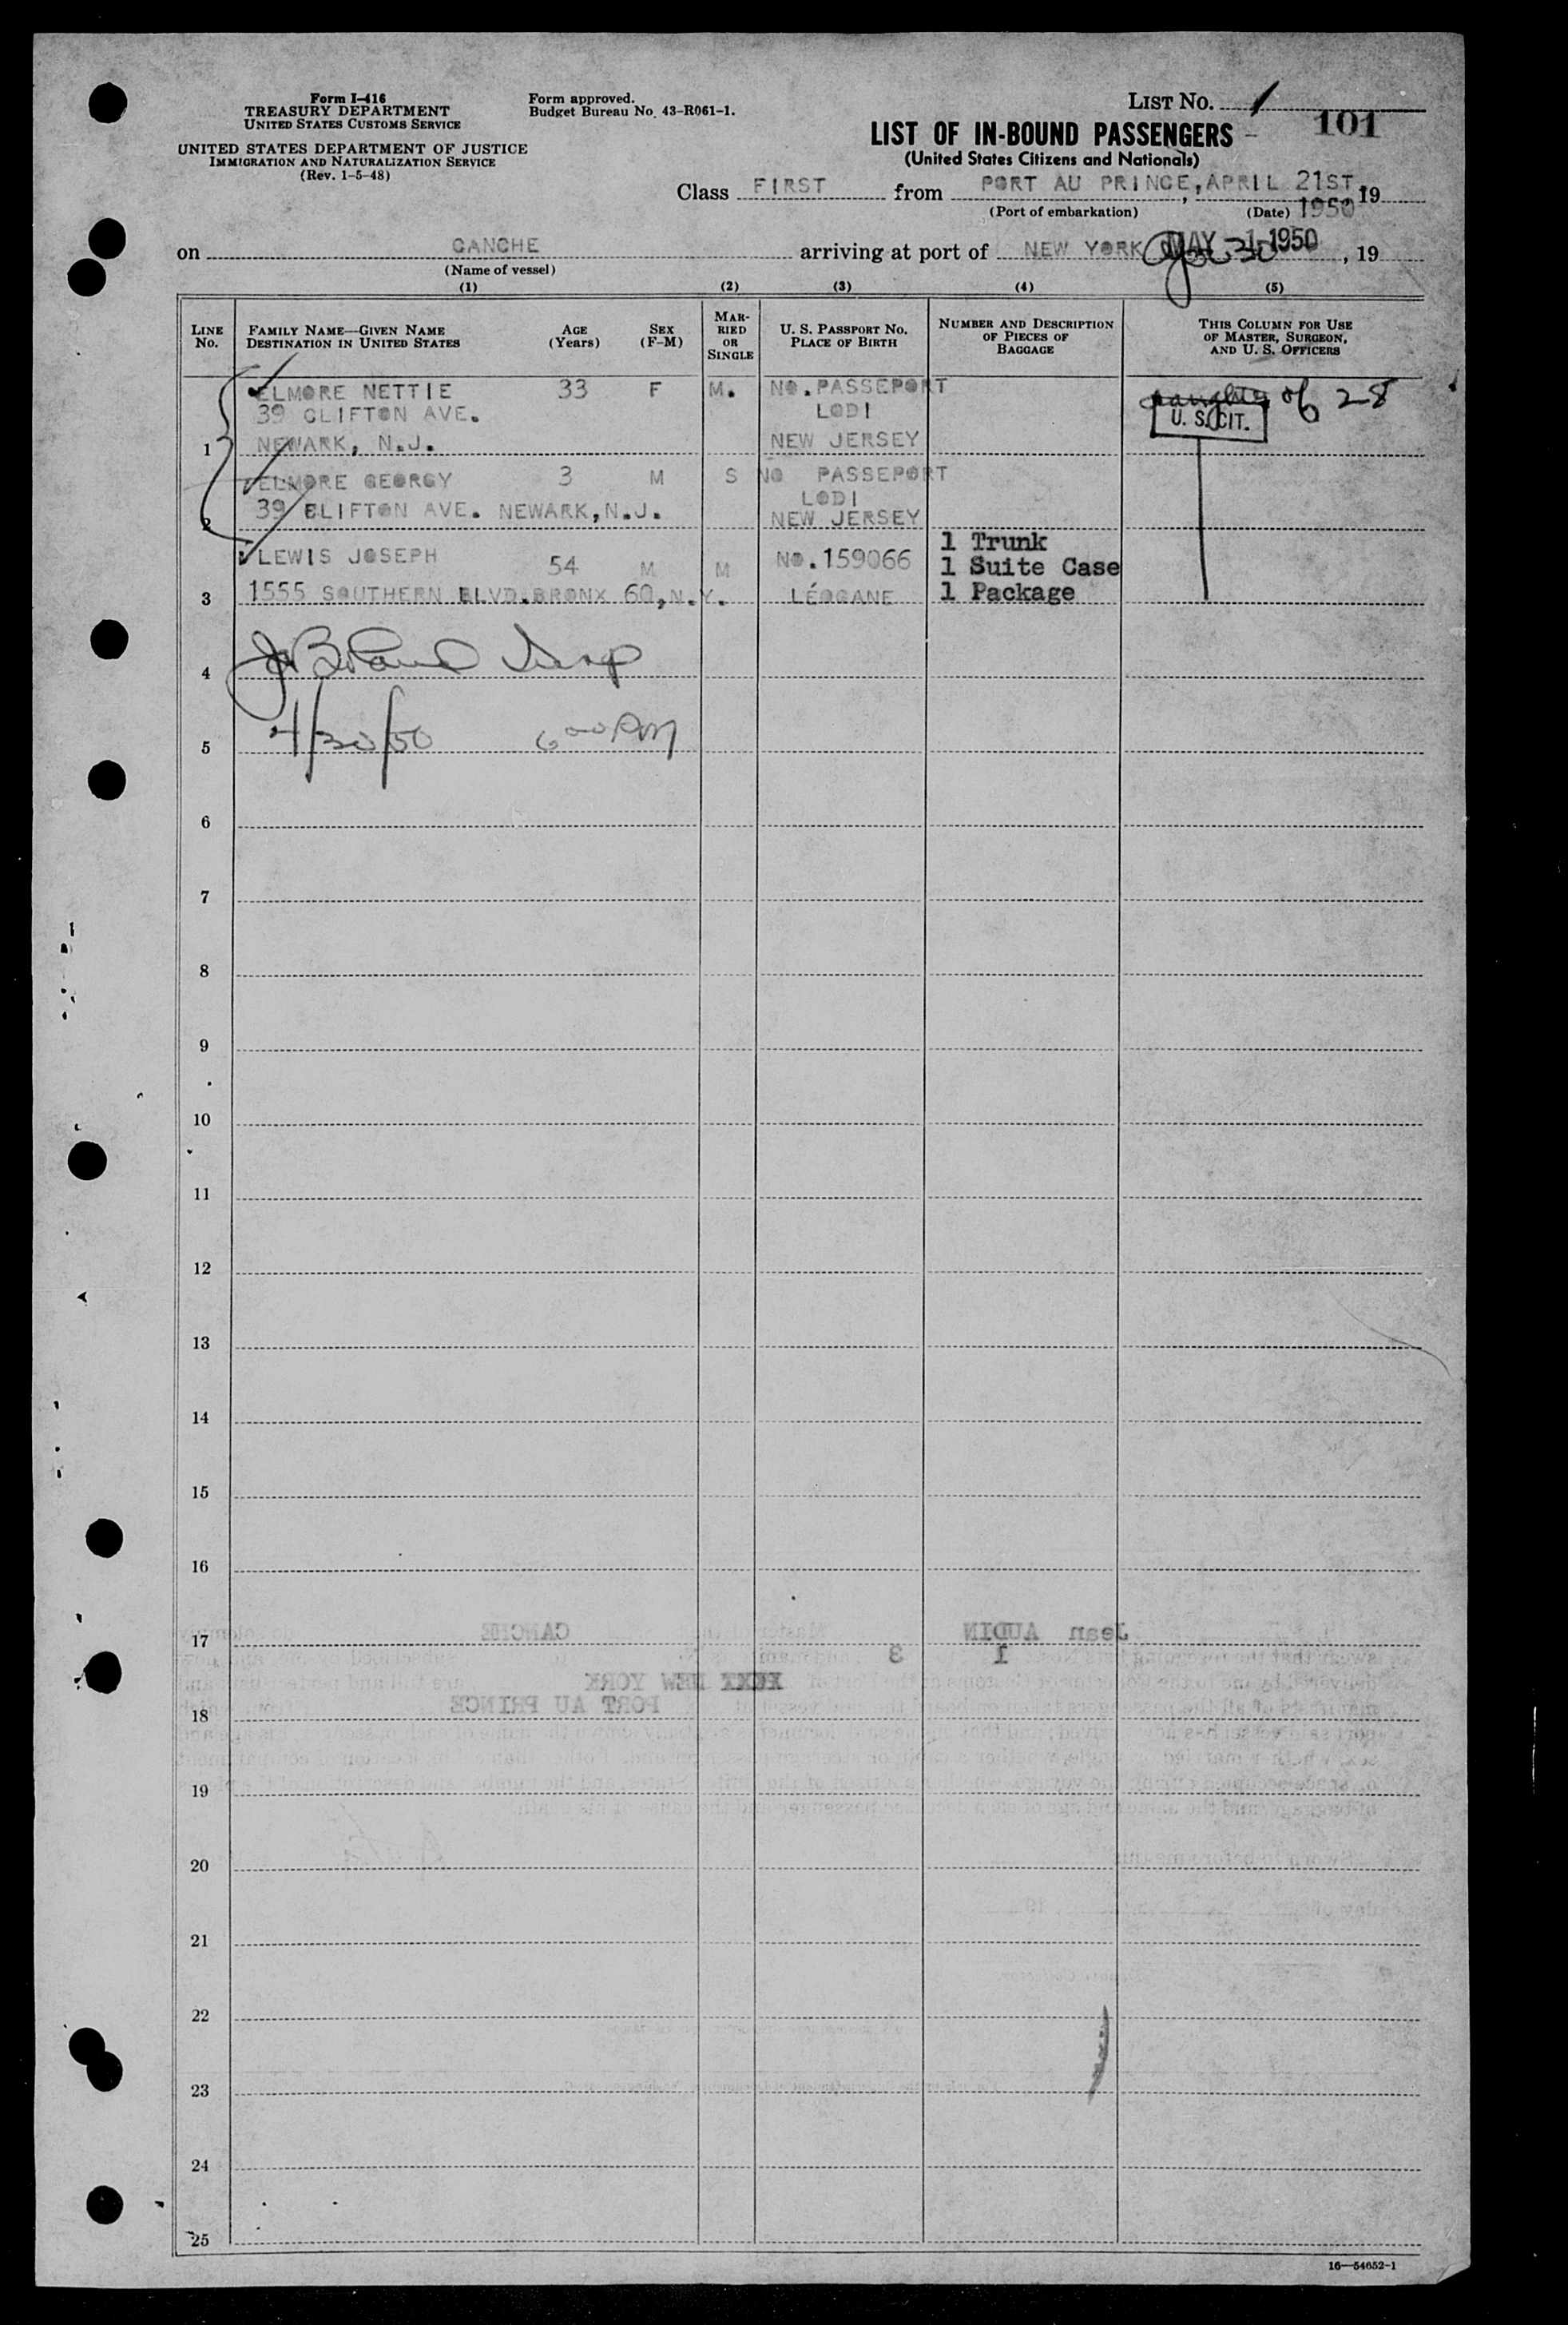 Form I-416
TREASURY DEPARTMENT
UNITED STATES CUSTOMS SERVICE
UNITED STATES DEPARTMENT OF JUSTICE
IMMIGRATION AND NATURALIZATION SERVICE
(Rev. 1-5-48)
Form approved.
Budget Bureau No. 43-R061-1.
LIST NO. 1
101
LIST OF IN-BOUND PASSENGERS
(United States Citizens and Nationals)
Class FIRST from PORT AU PRINCE, APRIL 21ST, 19
(Port of embarkation) (Date) 1950
on GANCHE arriving at port of NEW YORK MAY -1 1950, 19
(Name of vessel)
(1) (2) (3) (4) (5)
LINE No.
FAMILY NAME—GIVEN NAME
DESTINATION IN UNITED STATES
AGE (Years)
SEX (F-M)
MARRIED OR SINGLE
U. S. PASSPORT NO.
PLACE OF BIRTH
NUMBER AND DESCRIPTION OF PIECES OF BAGGAGE
THIS COLUMN FOR USE OF MASTER, SURGEON, AND U. S. OFFICERS
1 ELMORE NETTIE 33 F M. NO. PASSEPORT
39 CLIFTON AVE. LODI
NEWARK, N.J. NEW JERSEY
of 28
U. S. CIT.
2 ELMORE GEORGY 3 M S NO PASSEPORT
LODI
39 CLIFTON AVE. NEWARK, N.J. NEW JERSEY
3 LEWIS JOSEPH 54 M M NO. 159066
1555 SOUTHERN BLVD. BRONX 60, N.Y. LÉOGANE
1 Trunk
1 Suite Case
1 Package
4
5 4/30/50 6 00 PM
6
7
8
9
10
11
12
13
14
15
16
17
Jean AUDIN GANCHE
1 3
NEW YORK
18
PORT AU PRINCE
19
20
21
22
23
24
25
16—54652-1